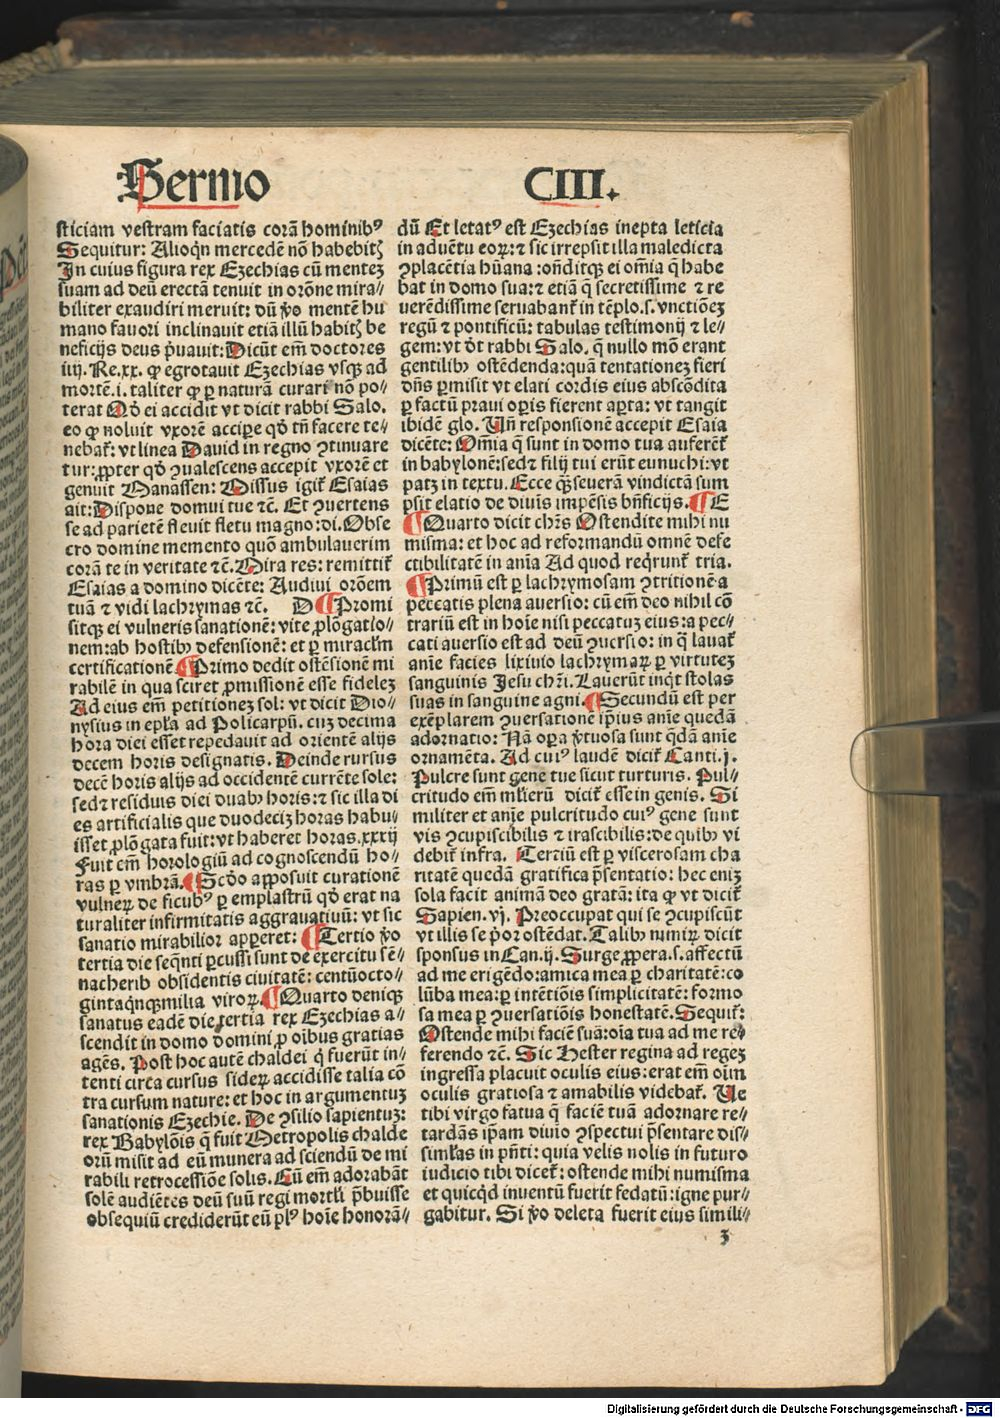 Sermo CIII.
sticiam vestram faciatis corā hominibꝰ
Sequitur: Alioqn̄ mercedē nō habebitꝭ
In cuius figura rex Ezechias cū menteꝫ
suam ad deū erectā tenuit in orōne mira⸗
biliter exaudiri meruit: dū ỽo mentē hu
mano fauori inclinauit etiā illū habitꝭ be
neficijs deus p̄uauit: Dicūt em̄ doctores
iiij. Re.xx. ꝙ egrotauit Ezechias vsqꝫ ad
mortē.i. taliter ꝙ ꝑ naturā curari nō po⸗
terat Qd̄ ei accidit vt dicit rabbi Salo.
eo ꝙ noluit vxorē accipe qd̄ tn̄ facere te⸗
nebat᷑: vt linea Dauid in regno ꝯtinuare
tur: ꝓpter qd̄ ꝯualescens accepit vxorē et
genuit Manassen: Missus igit᷑ Esaias
ait: Dispone domui tue ⁊c̄. Et ꝯuertens
se ad parietē fleuit fletu magno: di. Obse
cro domine memento quō ambulauerim
corā te in veritate ⁊c̄. Mira res: remittit᷑
Esaias a domino dicēte: Audiui orōem
tuā ⁊ vidi lachrymas ⁊c̄. D ¶ Promi
sitqꝫ ei vulneris sanationē: vite ꝓlōgatio⸗
nem: ab hostibꝰ defensionē: et ꝑ miracl̄m
certificationē ¶ Primo dedit ostēsionē mi
rabilē in qua sciret ꝓmissionē esse fideleꝫ
Ad eius em̄ petitioneꝫ sol: vt dicit Dio⸗
nysius in epl̄a ad Policarpū. cuꝫ decima
hora diei esset repedauit ad orientē alijs
decem horis designatis. Deinde rursus
decē horis alijs ad occidentē currēte sole:
sed ⁊ residuis diei duabꝰ horis: ⁊ sic illa di
es artificialis que duodeciꝫ horas habu⸗
isset ꝓlōgata fuit: vt haberet horas.xxxij
Fuit em̄ horologiū ad cognoscendū ho⸗
ras ꝑ vmbrā. ¶ Scd̄o apposuit curationē
vulneꝝ de ficubꝰ ꝑ emplastrū qd̄ erat na
turaliter infirmitatis aggrauatiuū: vt sic
sanatio mirabilior apꝑeret: ¶ Tertio ỽo
tertia die seq̄nti ꝑcussi sunt de exercitu sē⸗
nacherib obsidentis ciuitatē: centūocto⸗
gintaqn̄qꝫmilia viroꝝ. ¶ Quarto deniqꝫ
sanatus eadē die tertia rex Ezechias a⸗
scendit in domo domini ꝓ oibus gratias
agēs. Post hoc autē chaldei q̄ fuerūt in⸗
tenti circa cursus sideꝝ accidisse talia cō
tra cursum nature: et hoc in argumentuꝫ
sanationis Ezechie. De ꝯsilio sapientuꝫ:
rex Babylōis q̄ fuit Metropolis chalde
orū misit ad eū munera ad sciendū de mi
rabili retrocessiōe solis. Eū em̄ adorabāt
solē audiētes deū suū regi mortl̄i p̄buisse
obsequiū crediderūt eū plꝰ hoīe honorā⸗
dū Et letatꝰ est Ezechias inepta leticia
in aduētu eoꝝ: ⁊ sic irrepsit illa maledicta
ꝯplacētia hūana: on̄ditqꝫ ei om̄ia q̄ habe
bat in domo sua: ⁊ etiā q̄ secretissime ⁊ re
uerēdissime seruabant᷑ in tēplo. s. vnctiōeꝫ
regū ⁊ pontificū: tabulas testimonij ⁊ le⸗
gem: vt dt̄ rabbi Salo. q̄ nullo mō erant
gentilibꝰ ostēdenda: quā tentationeꝫ fieri
dn̄s ꝑmisit vt elati cordis eius abscōdita
ꝑ factū praui oꝑis fierent aꝑta: vt tangit
ibidē glo. Un̄ responsionē accepit Esaia
dicēte: Om̄ia q̄ sunt in domo tua auferēt᷑
in babylonē: sed ⁊ filij tui erūt eunuchi: vt
patꝫ in textu. Ecce qꝫ seuerā vindictā sum
psit elatio de diuīs impēsis bn̄ficijs. ¶ E
¶ Quarto dicit chr̄s Ostendite mihi nu
misma: et hoc ad reformandū omnē defe
ctibilitatē in aīa Ad quod reqrunt᷑ tria.
¶ Primū est ꝑ lachrymosam ꝯtritionē a
peccatis plena auersio: cū em̄ deo nihil cō
trariū est in hoīe nisi peccatuꝫ eius: a pec⸗
cati auersio est ad deū ꝯuersio: in q̄ lauat᷑
anīe facies lixiuio lachrymaꝝ ꝑ virtuteꝫ
sanguinis Jesu chr̄i. Lauerūt inqt stolas
suas in sanguine agni. ¶ Secundū est per
exēplarem ꝯuersationē ip̄ius anīe quedā
adornatio: Nā oꝑa ỽtuosa sunt qd̄ā anīe
ornamēta. Ad cuiꝰ laudē dicit᷑ Canti.j.
Pulcre sunt gene tue sicut turturis. Pul⸗
critudo em̄ ml̄ierū dicit᷑ esse in genis. Si
militer et anīe pulcritudo cuiꝰ gene sunt
vis ꝯcupiscibilis ⁊ irascibilis: de quibꝰ vi
debit᷑ infra. Tertiū est ꝑ viscerosam cha
ritatē quedā gratifica p̄sentatio: hec eniꝫ
sola facit animā deo gratā: ita ꝙ vt dicit᷑
Sapien. vj. Preoccupat qui se ꝯcupiscūt
vt illis se p̄or ostēdat. Talibꝰ nimiꝝ dicit
sponsus in Can.ij. Surge ꝓpera. s. affectū
ad me erigēdo: amica mea ꝑ charitatē: co
lūba mea: ꝑ intētiōis simplicitatē: formo
sa mea ꝑ ꝯuersatiōis honestatē. Sequit᷑:
Ostende mihi faciē suā: oīa tua ad me re⸗
ferendo ⁊c̄. Sic Hester regina ad regeꝫ
ingressa placuit oculis eius: erat em̄ oīm
oculis gratiosa ⁊ amabilis videbat᷑. Ue
tibi virgo fatua q̄ faciē tuā adornare re⸗
tardās ip̄am diuīo ꝯspectui p̄sentare dis⸗
siml̄as in pn̄ti: quia velis nolis in futuro
iudicio tibi dicet᷑: ostende mihi numisma
et quicqd inuentū fuerit fedatū: igne pur⸗
gabitur. Si ỽo deleta fuerit eius simili⸗
ʒ
Digitalisierung gefördert durch die Deutsche Forschungsgemeinschaft - DFG